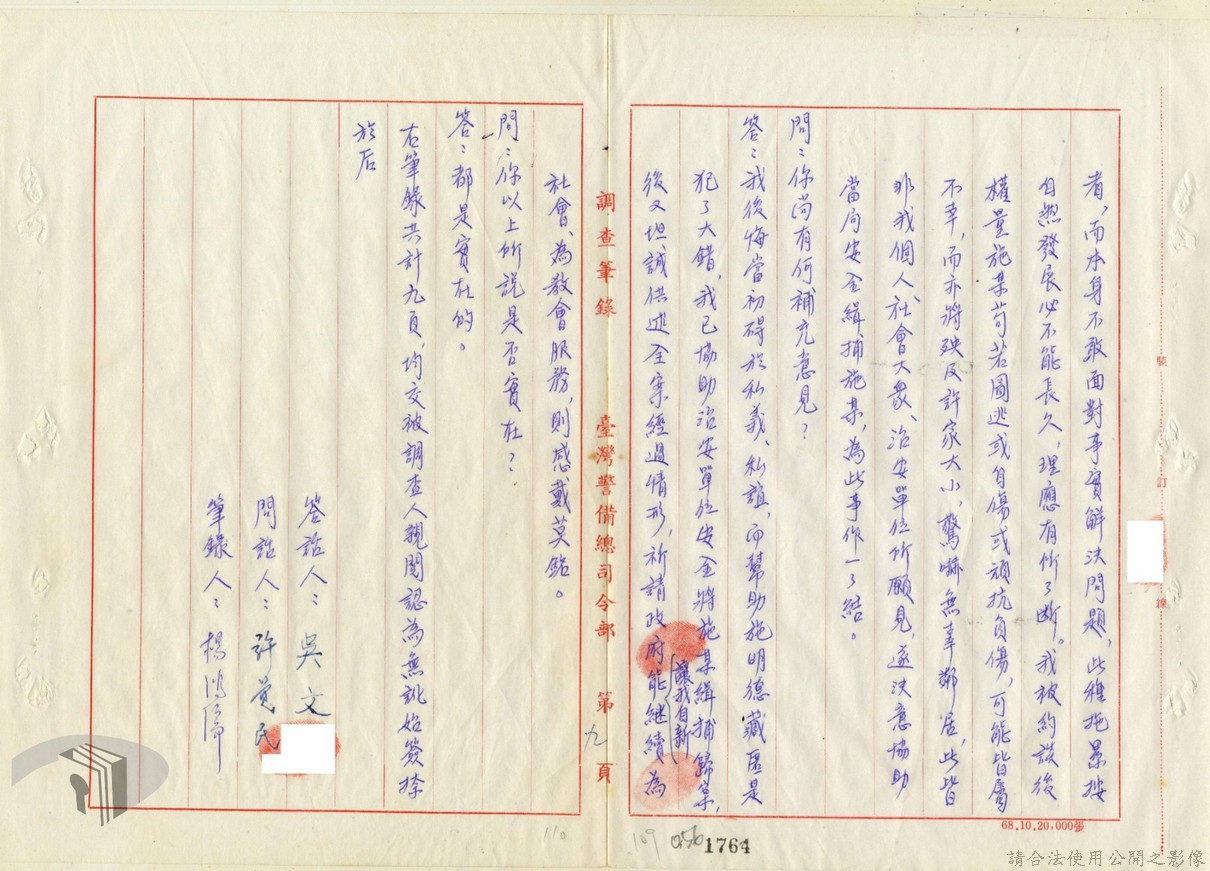 者，而本身不敢面對事實解決問題，此種拖累按
自然發展必不能長久，理應有所了斷。我被約談後
權量施某苟若圖逃或自傷或頑抗負傷，可能皆屬
不幸，而亦將殃及許家大小，驚嚇無辜鄰居，此皆
非我個人、社會大眾、治安單位所願見，遂決意協助
當局安全緝捕施某，為此事作一了結。
問：你尚有何補充意見？
答：我後悔當初礙於私義、私誼，而幫助施明德藏匿是
犯了大錯，我已協助治安單位安全將施某緝捕歸案，
後又坦誠供述全案經過情形，祈請政府能讓我自新繼續為
調查筆錄 臺灣警備總司令部 第九頁
社會、為教會服務，則感戴莫銘。
問：你以上所說是否實在？
答：都是實在的。
右筆錄共計九頁，均交被調查人親閱認為無訛始簽捺
於后
答話人：吳文
問話人：許黨民
筆錄人：楊
裝
訂
線
68.10.20,000張
109
056
1764
110
請合法使用公開之影像